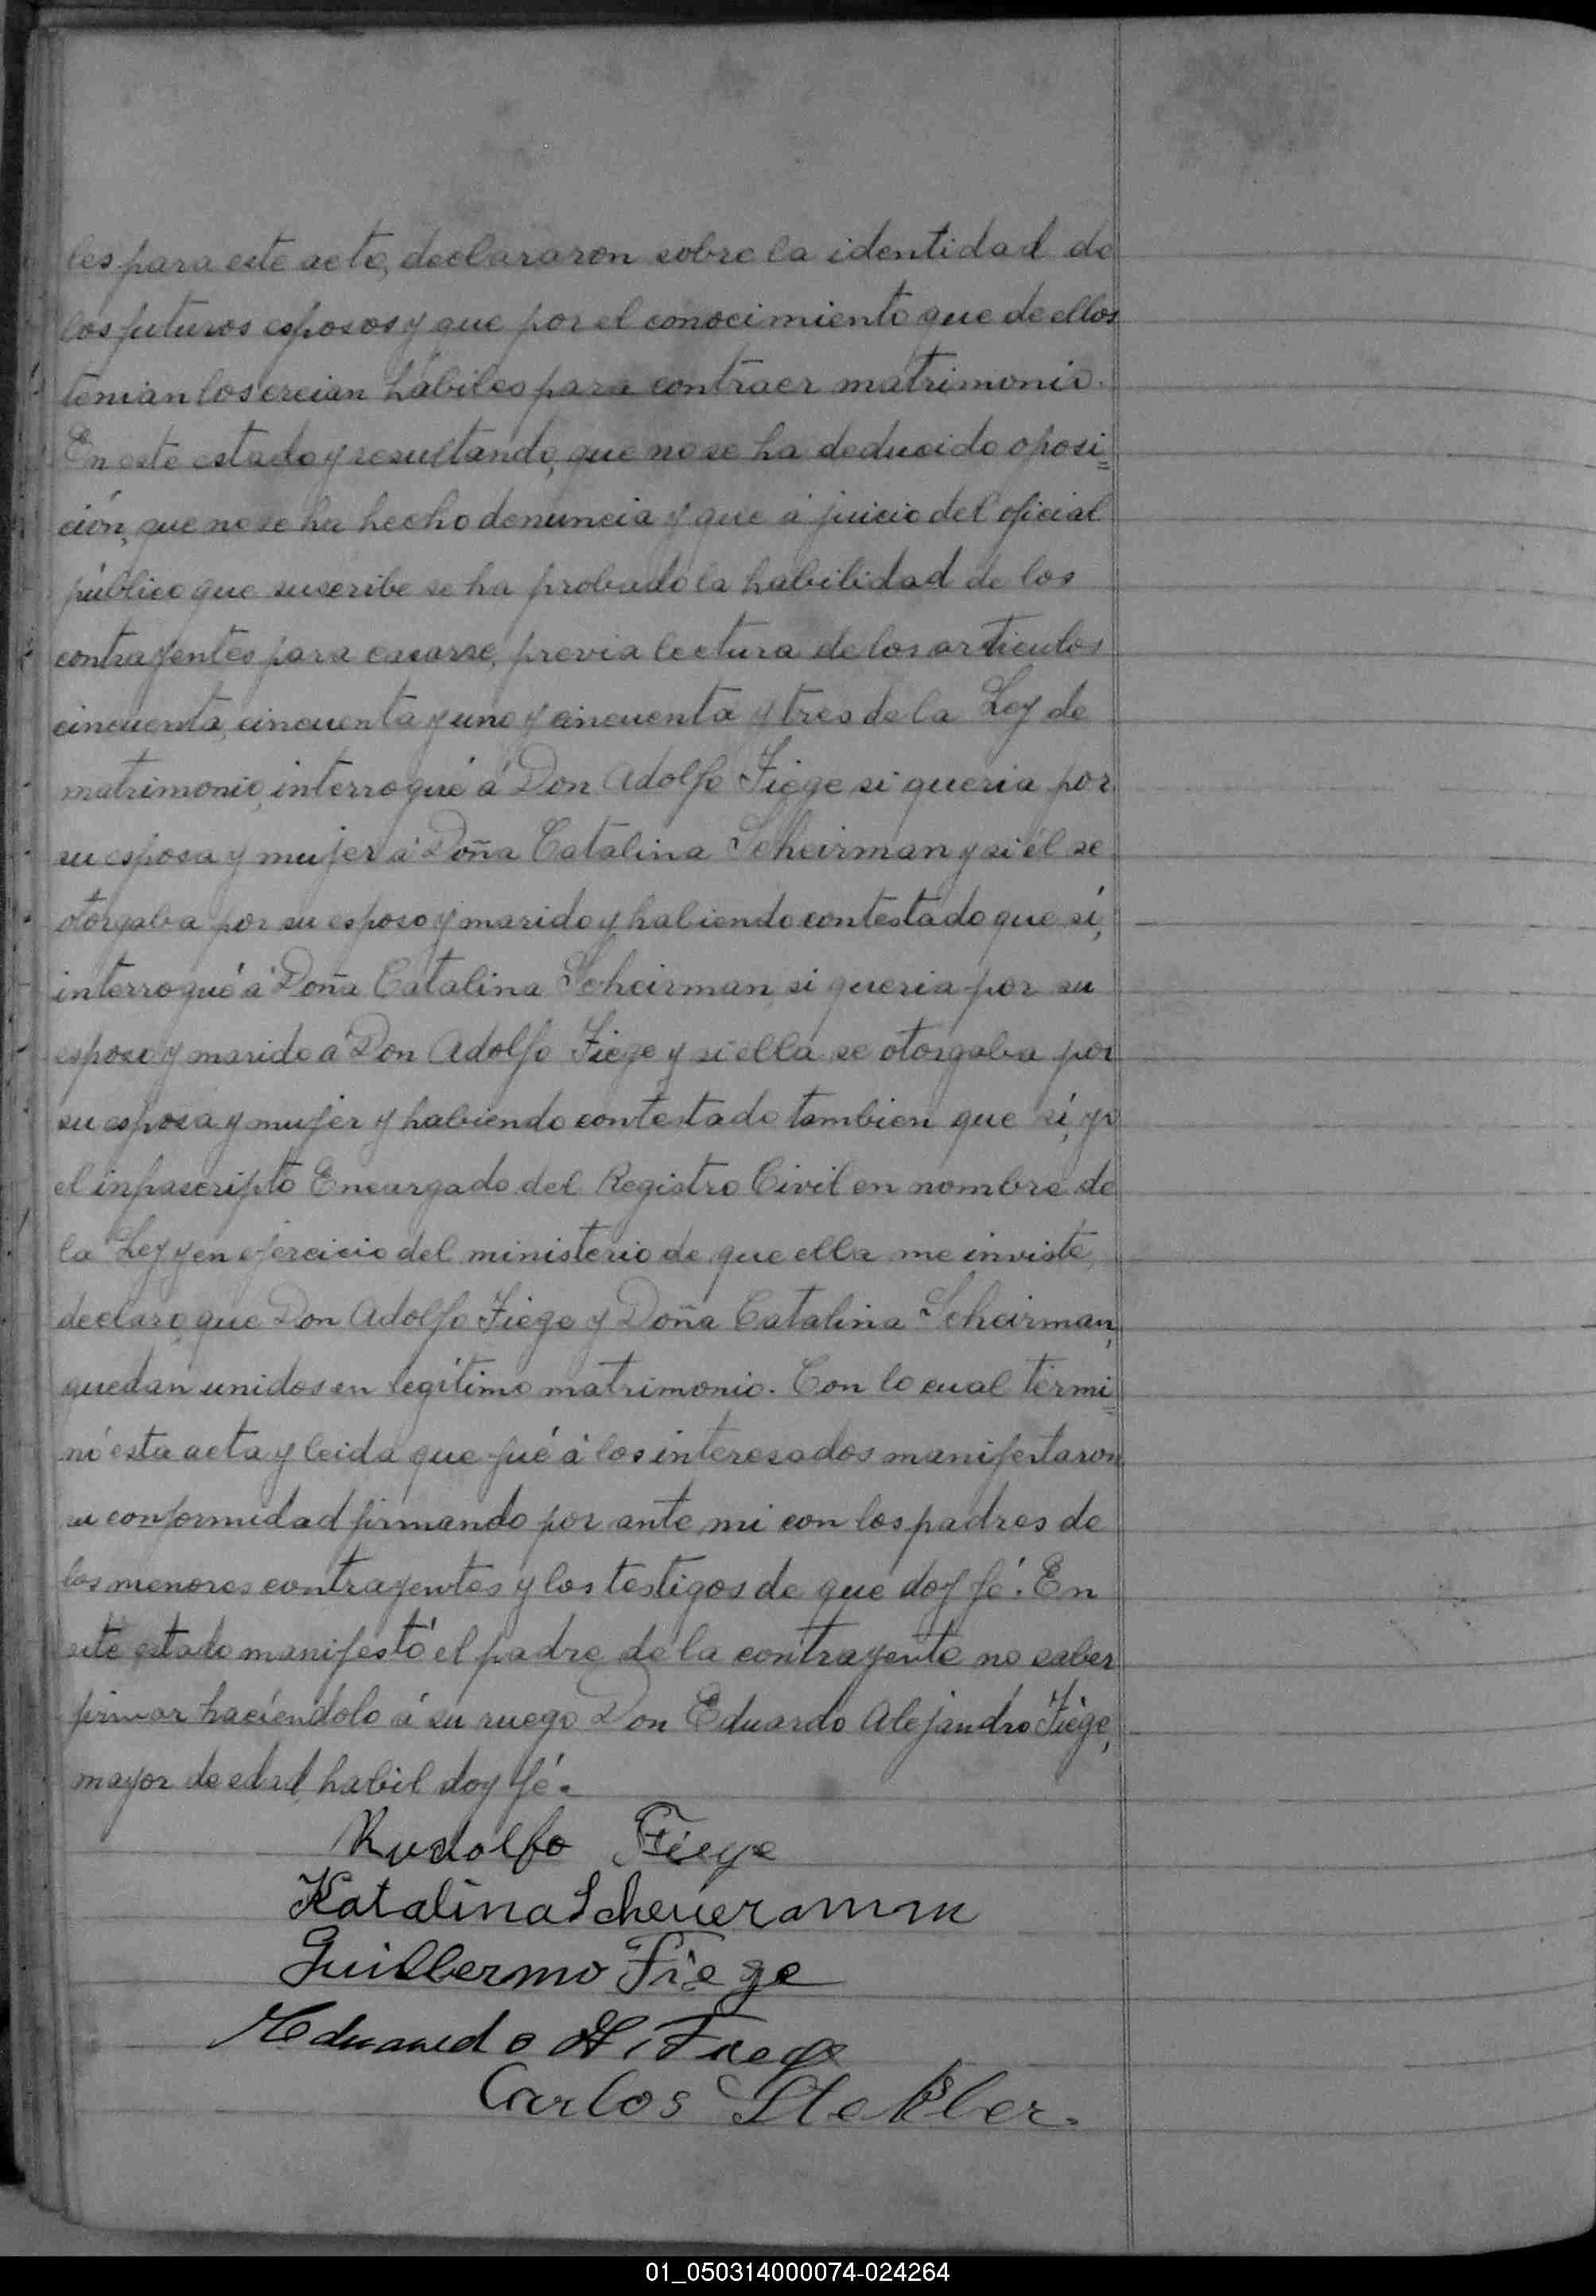 les para este acto, declararon sobre la identidad de
los futuros esposos y que por el conocimiento que de ellos
tenian los creian hábiles para contraer matrimonio.
En este estado y resultando, que no se ha deducido oposi=
ción, que no se ha hecho denuncia y que á juicio del oficial
público que suscribe se ha probado la habilidad de los
contrayentes para casarse, previa lectura de los articulos
cincuenta, cincuenta y uno y cincuenta y tres de la Ley de
matrimonio, interrogué á Don Adolfo Fiege si queria por
su esposa y mujer á Doña Catalina Scheirman y si él se
otorgaba por su esposo y marido y habiendo contestado que sí,
interrogué á Doña Catalina Scheirman, si queria por su
esposo y marido á Don Adolfo Fiege y si ella se otorgaba por
su esposa y mujer y habiendo contestado tambien que sí, yo
el infrascripto Encargado del Registro Civil en nombre de
la Ley y en ejercicio del ministerio de que ella me inviste,
declaro, que Don Adolfo Fiege y Doña Catalina Scheirman,
quedan unidos en legítimo matrimonio. Con lo cual termi=
nó esta acta y leida que fué á los interesados manifestaron
su conformidad firmando por ante mi con los padres de
los menores contrayentes y los testigos de que doy fé. En
este estado manifestó el padre de la contrayente no saber
firmar haciéndolo á su ruego Don Eduardo Alejandro Fiege,
mayor de edad, habil doy fé.
Rudolfo Fiege
Katalina Scheuermann
Guillermo Fiege
Eduardo A. Fiege
Carlos Stekler.
01_050314000074-024264